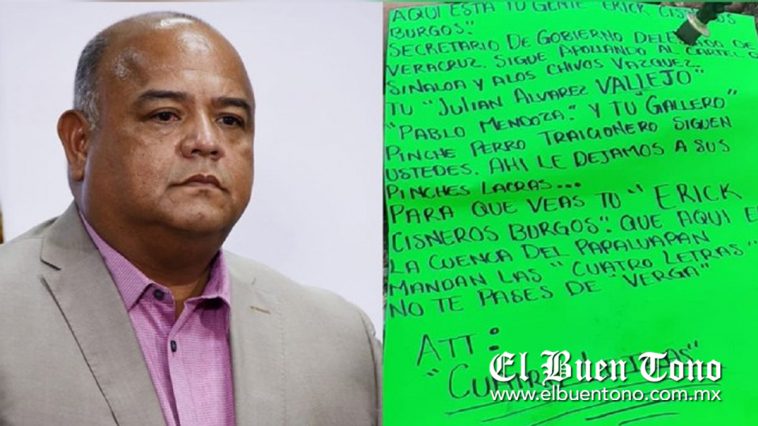 AQUI ESTA TU GENTE "ERICK CISNEROS
BURGOS".
SECRETARIO DE GOBIERNO DEL DE
VERACRUZ. SIGUE APOLLANDO AL CARTEL
SINALOA Y ALOS CHIVOS VAZQUEZ.
TU "JULIAN ALVAREZ VALLEJO"
"PABLO MENDOZA." Y TU "GALLERO"
PINCHE PERRO TRAICIONERO SIGUEN
USTEDES. AHI LE DEJAMOS A SUS
PINCHES LACRAS...
PARA QUE VEAS TU "ERICK
CISNEROS BURGOS". QUE AQUI E
LA CUENCA DEL PAPALUAPAN
MANDAN LAS "CUATRO LETRAS"
NO TE PASES DE "VERGA"
ATT:
"CUATRO LETRAS"
El Buen Tono
www.elbuentono.com.mx